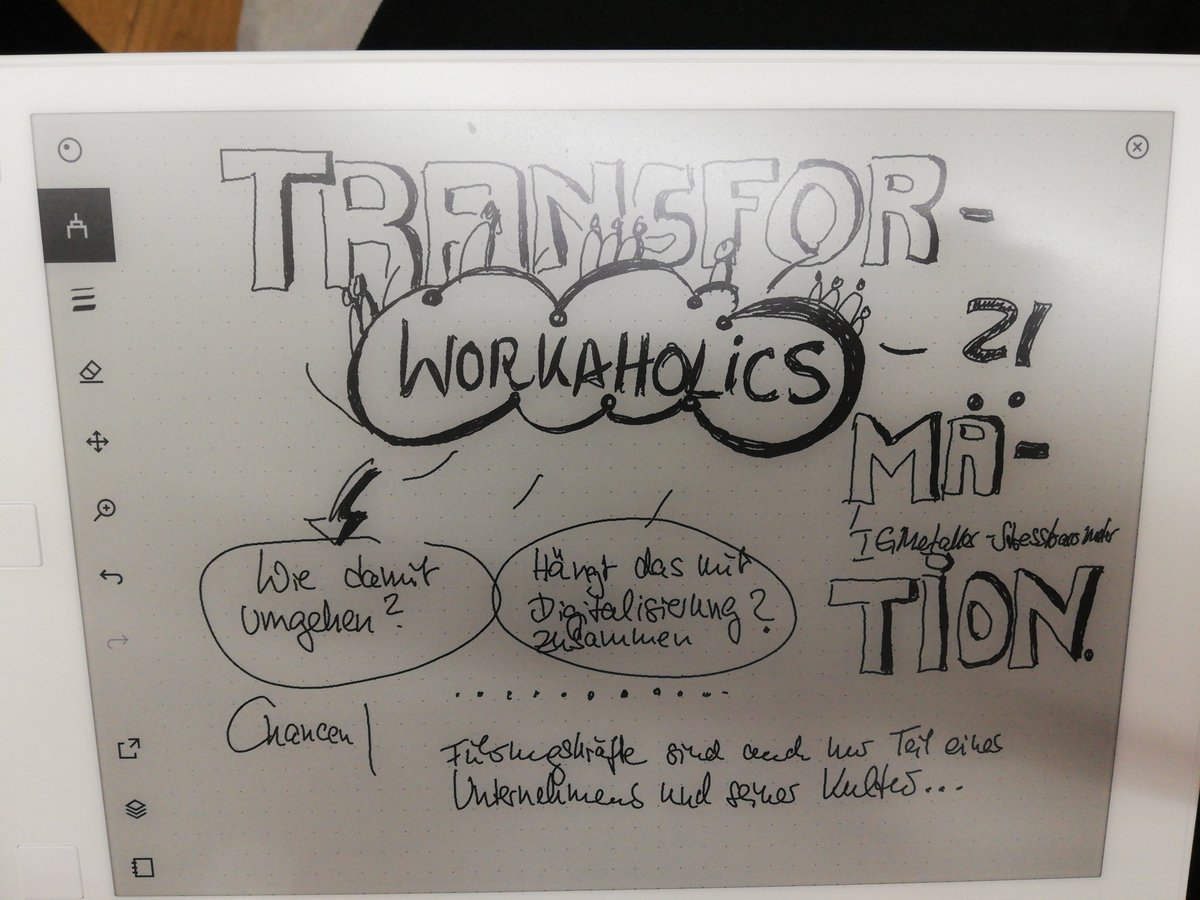 TRANSFOR-
WORKAHOLICS
- ?!
MÄ-
IGMetaller-Stressbarometer
TION.
Wie damit
umgehen?
Hängt das mit
Digitalisierung?
zusammen
Chancen
Führungskräfte sind auch nur Teil eines
Unternehmens und seiner Kultur...